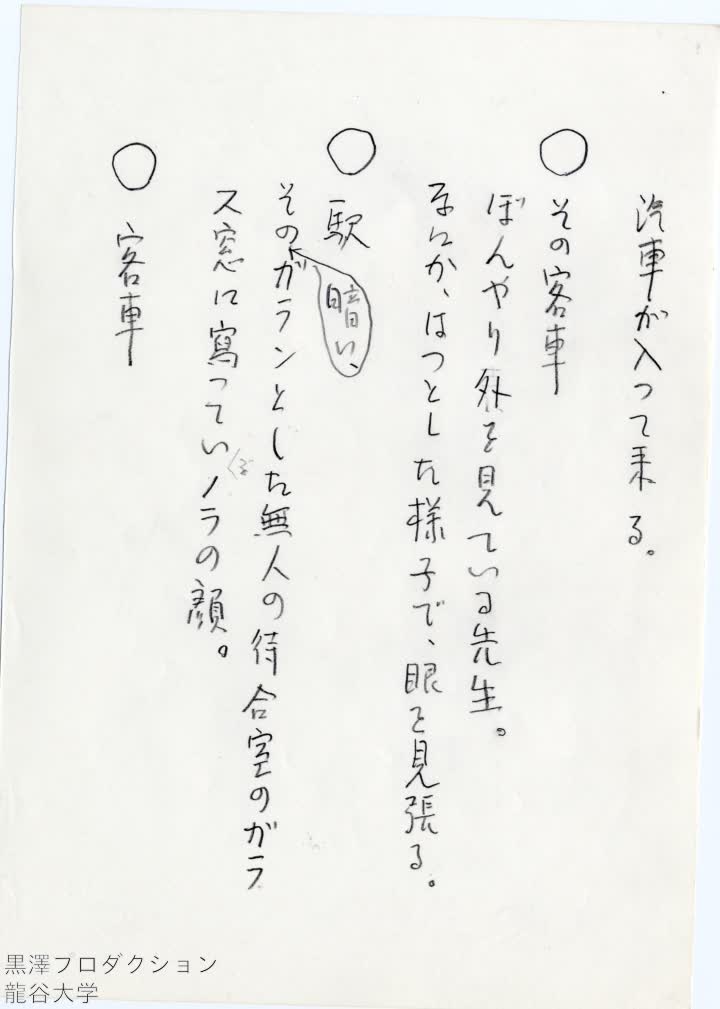 汽車が入つて来る。
○その客車
ぼんやり外を見ている先生。
なにか、はつとした様子で、眼を見張る。
○駅
その暗い、ガランとした無人の待合室のガラ
ス窓に寫っていノラの顔。
○客車
黒澤プロダクション
龍谷大学